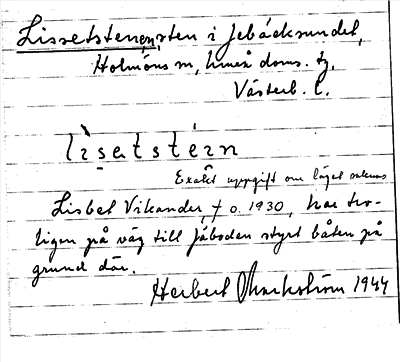 Lissetstenen, sten i Jebäcksundet,
Holmöns sn, Umeå doms. tg.
Västerb. l.
lìsætstérn
Exakt uppgift om läget saknas
Lisbet Vikander, f. o. 1930, har tro-
ligen på väg till fäboden styrt båten på
grund där.
Herbert Markström 1944